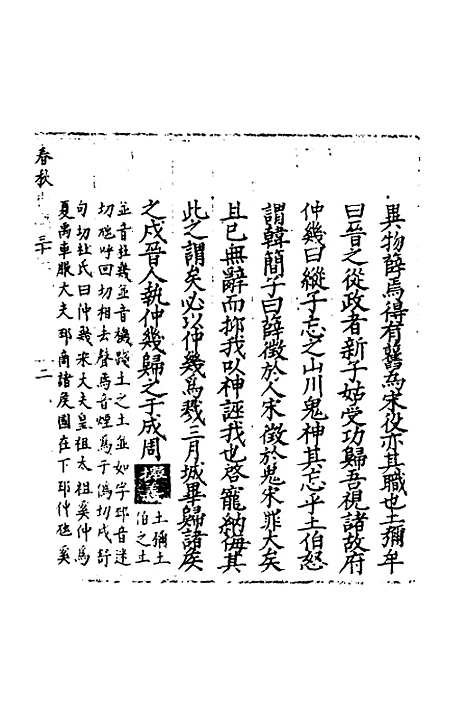 異物薛焉得有舊爲宋役亦其職也士彌牟
曰晉之從政者新子姑受功歸吾視諸故府
仲幾曰縱子忘之山川鬼神其忘乎士伯怒
謂韓簡子曰薛徵於人宋徵於鬼宋罪大矣
且已無辭而抑我以神誣我也啓寵納侮其
此之謂矣必以仲幾爲戮三月城畢歸諸侯
之戍晉人執仲幾歸之于成周
士彌士
伯之士
並音
並音機
土之土並如字邳音丕
切
呼回切相去聲焉音煙爲于僞切戍舒
句切杜氏曰仲幾宋大夫皇祖太祖奚仲爲
夏禹車服大夫邳商諸侯國在下邳仲虺奚
春秋
三十
二